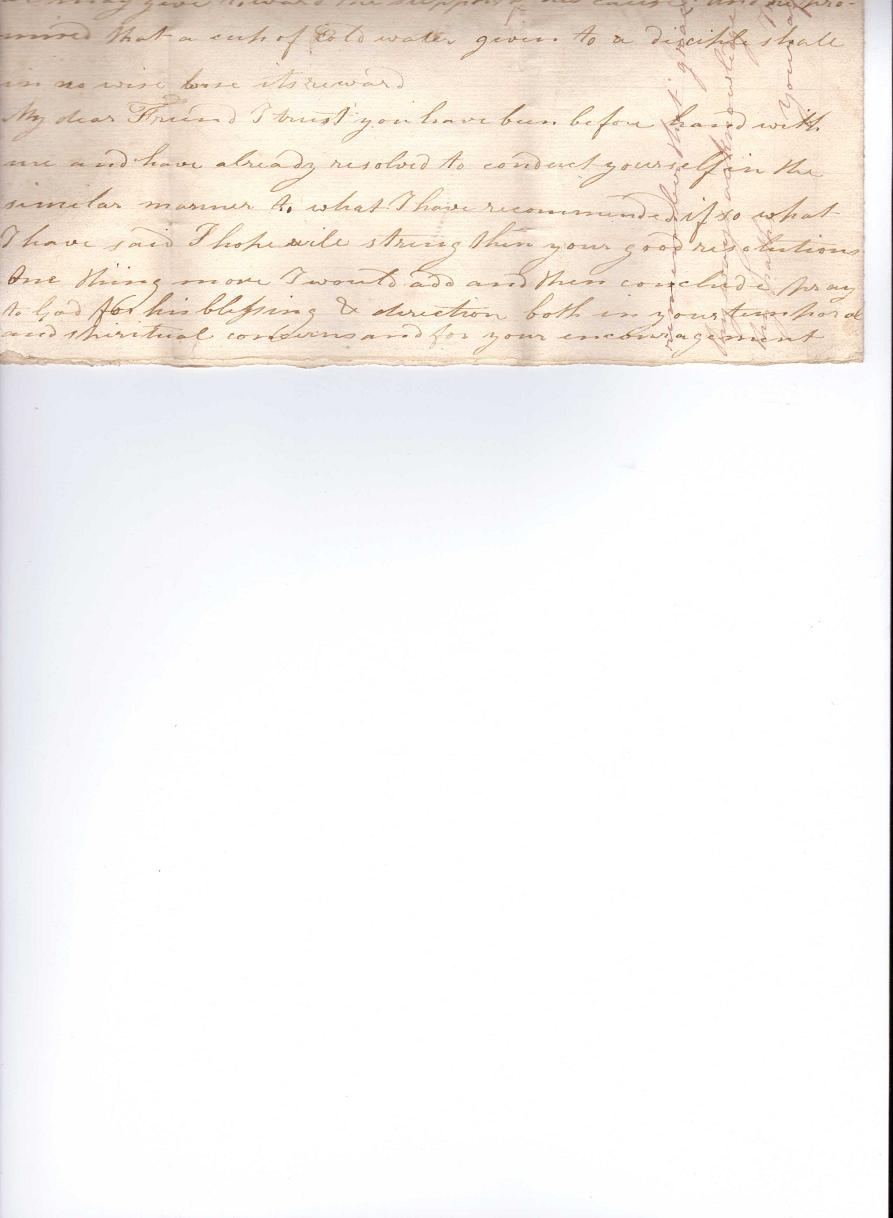 may give toward the support of his cause and he pro-
mised that a cup of Cold water given to a disciple shall
in no wise lose its reward
My dear Friend I trust you have been before hand with
me and have already resolved to conduct yourself in the
similar manner to what I have recommended if so what
I have said I hope wile strengthen your good resolutions
One thing more I would add and then conclude pray
to God for his blessing & direction both in your temporal
and spiritual concerns and for your encouragement
remember that
acknowledge
thy paths
Your